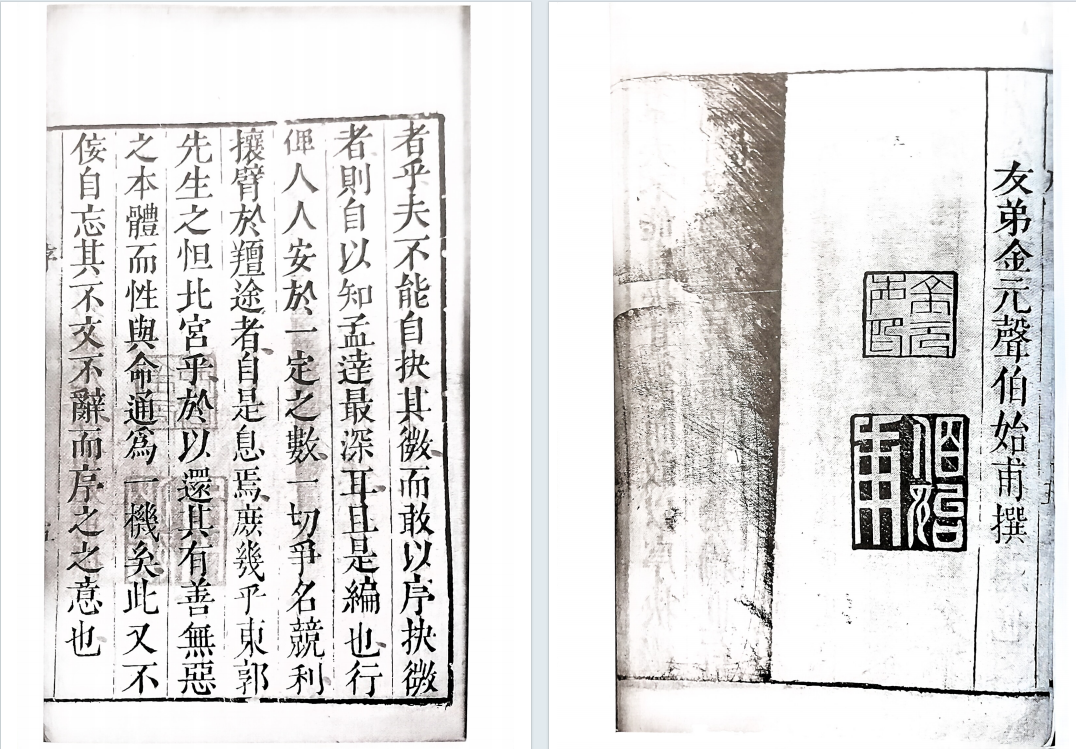 者乎夫不能自抉其微而敢以序抉微
者則自以知孟逵最深耳且是編也行
俾人人安於一定之數一切爭名競利
攘臂於羶途者自是息焉庶幾乎東郭
先生之怛北宮乎於以還其有善無惡
之本體而性與命通爲一機矣此又不
侫自忘其不文不辭而序之之意也
序
友弟金元聲伯始甫撰
伯始甫